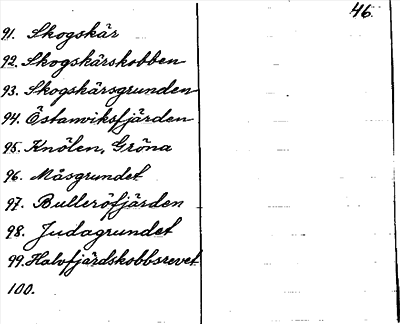 46.
91. Skogskär
92. Skogskärskobben
93. Skogskärsgrunden
94. Östanviksfjärden
95. Knölen, Gröna
96. Måsgrundet
97. Bulleröfjärden
98. Judagrundet
99. Halvfjärdskobbsrevet
100.